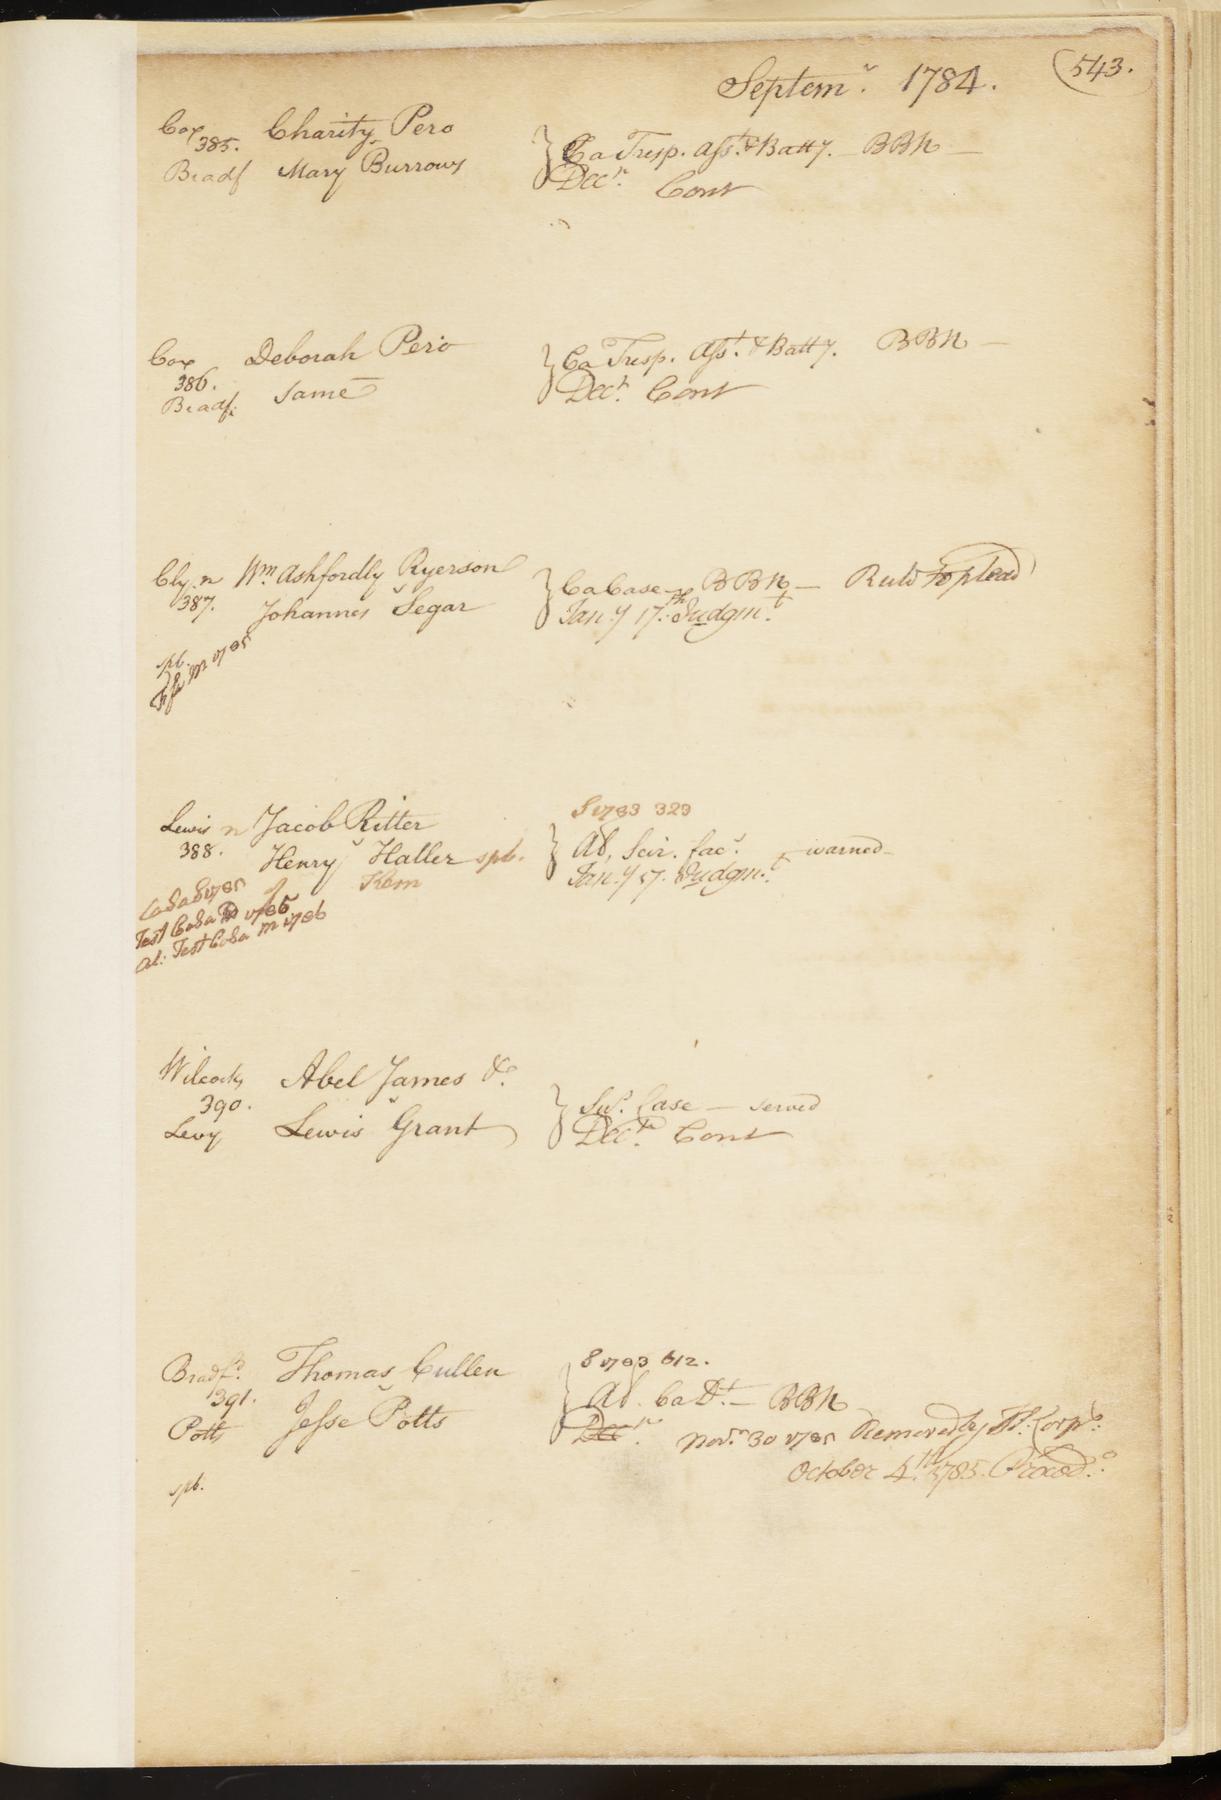 Septem.r 1784. 543.
Cox Charity Pero
385. v } Ca Tresp. Asst. & Batty. — BBN —
Bradf Mary Burrows Decr. Cont
Cox Deborah Pero
386. } Ca Tresp. Asst. & Batty. BBN —
Bradf: Same Decr. Cont
Cly. n Wm. Ashfordly Ryerson
387. v } Ca Case — BBN — Ruld to plead
Johannes Segar Jan.y 17.th Judgm.t
spb.
Fi fa M 1785
S 1783 323
Lewis n Jacob Ritter
388. v } Al, Scir. fac.s — warned
Henry Haller spb. Jan.y 17. Judgm.t
Kem
Ca Sa S 1785
Test Ca Sa D 1785
Al: Test Ca Sa M 1786
Wilcocks Abel James &c.
390. v } Sus. Case — served
Levy Lewis Grant Decr. Cont
S 1783 612.
Bradf.d Thomas Cullen
391. v } Al. Ca Dt. — BBN
Potts Jesse Potts Decr.
Nov.r 30 1785 Removed by H: Corp.s:
October 4.th 1785. Proced.o
spb.